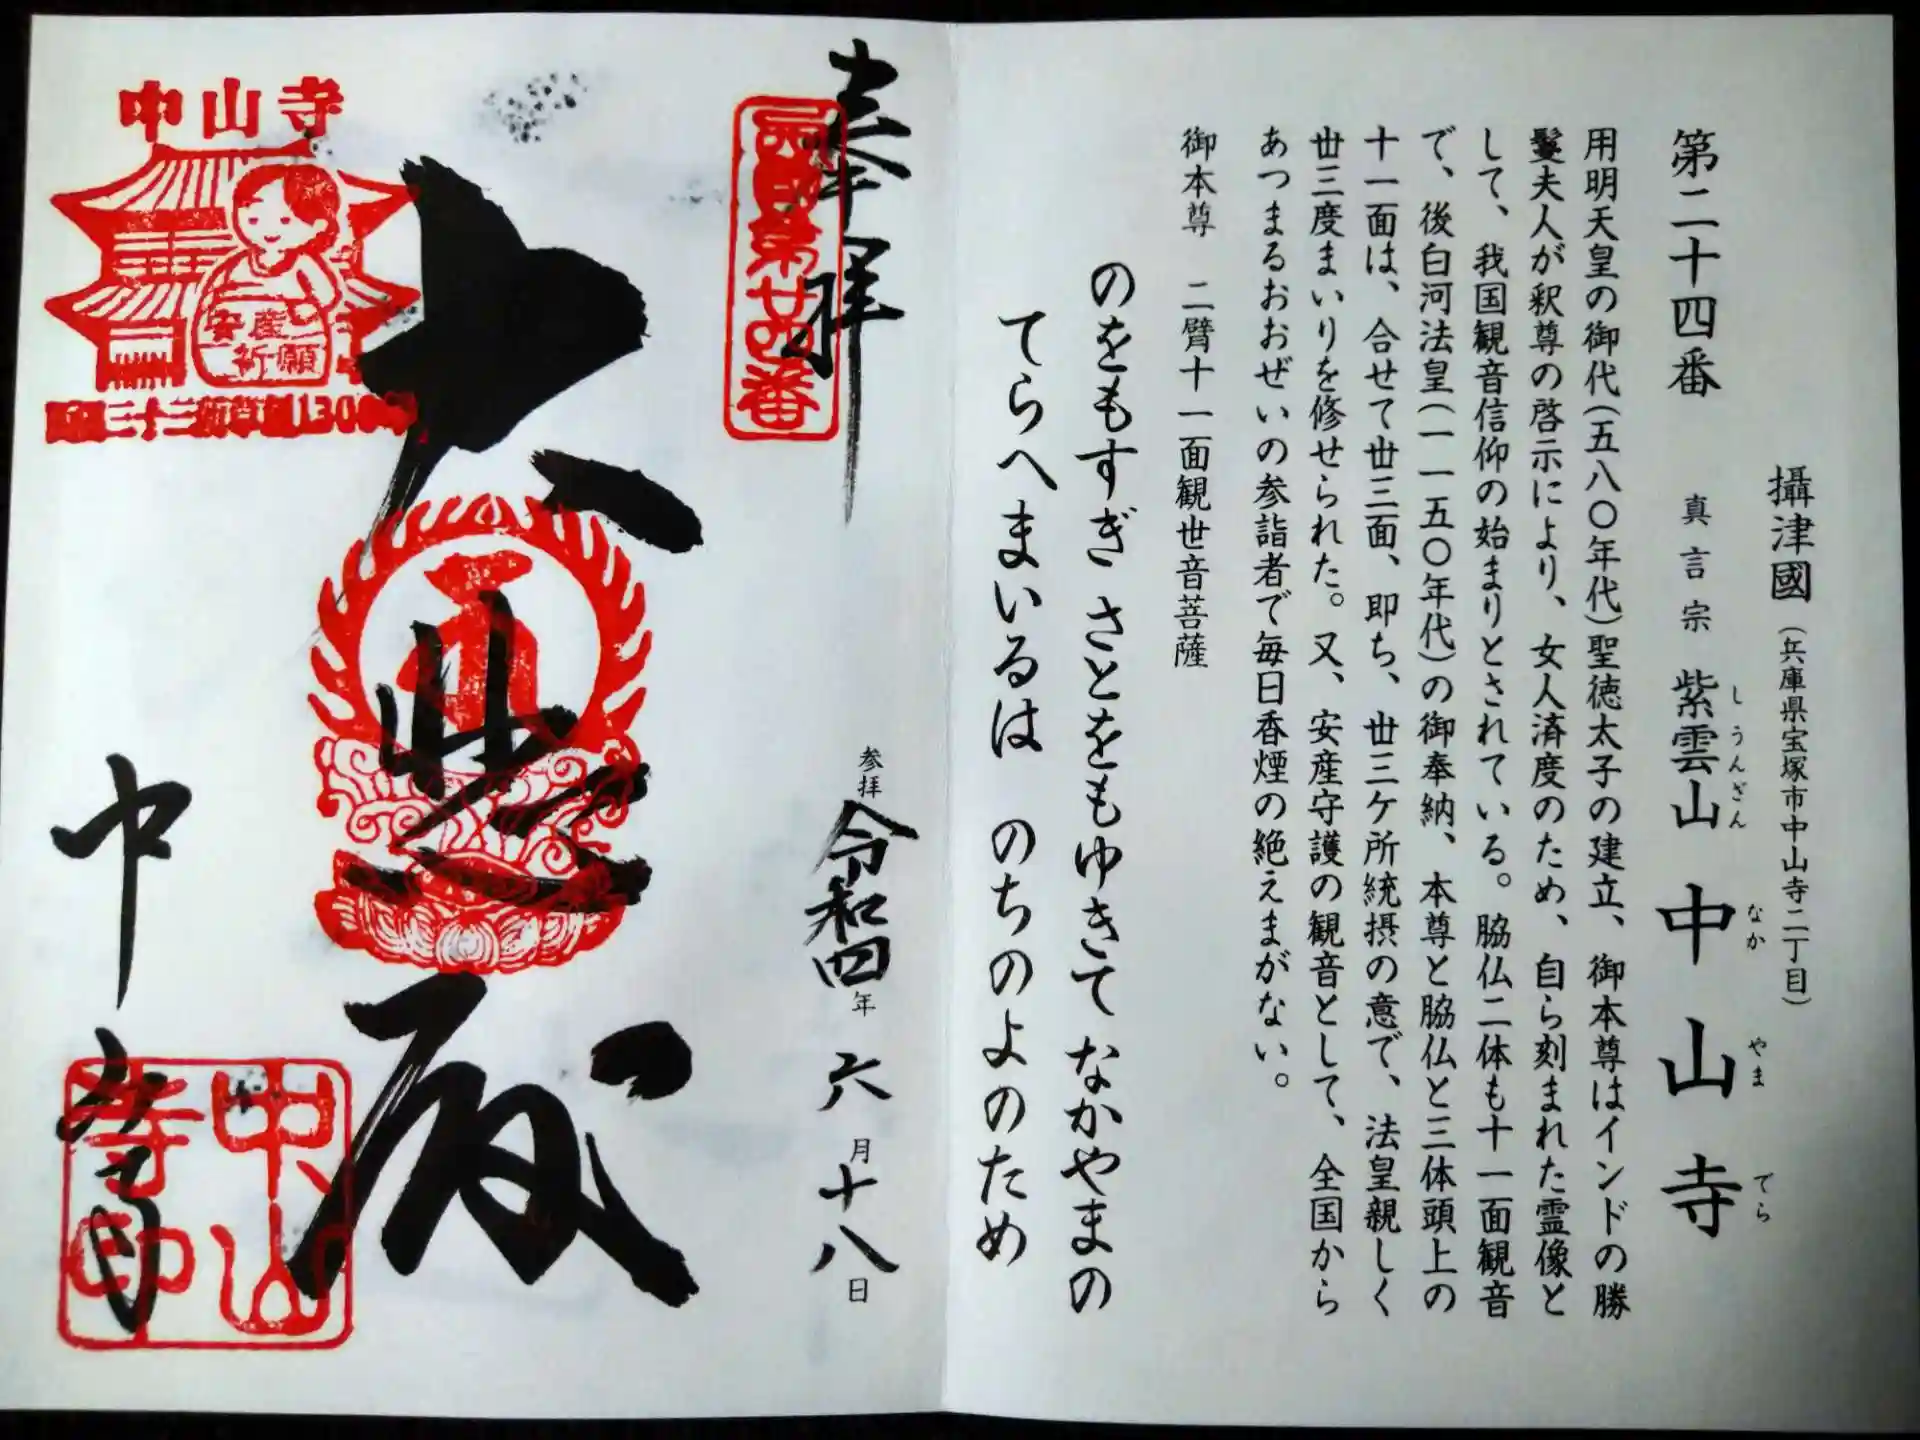 攝津國(兵庫県宝塚市中山寺二丁目)
第二十四番 真言宗 紫雲山 中山寺
しうんざん なか やま てら
用明天皇の御代(五八〇年代)聖徳太子の建立、御本尊はインドの勝
鬘夫人が釈尊の啓示により、女人済度のため、自ら刻まれた霊像と
して、我国観音信仰の始まりとされている。脇仏二体も十一面観音
で、後白河法皇(一一五〇年代)の御奉納、本尊と脇仏と三体頭上の
十一面は、合せて丗三面、即ち、丗三ケ所統摂の意で、法皇親しく
丗三度まいりを修せられた。又、安産守護の観音として、全国から
あつまるおおぜいの参詣者で毎日香煙の絶えまがない。
御本尊 二臂十一面観世音菩薩
のをもすぎ さとをもゆきて なかやまの
てらへまいるは のちのよのため
奉拝
西國第廿四番
参拝 令和四年 六月十八日
大悲殿
中山寺
安産
祈願
中山寺
中山寺印